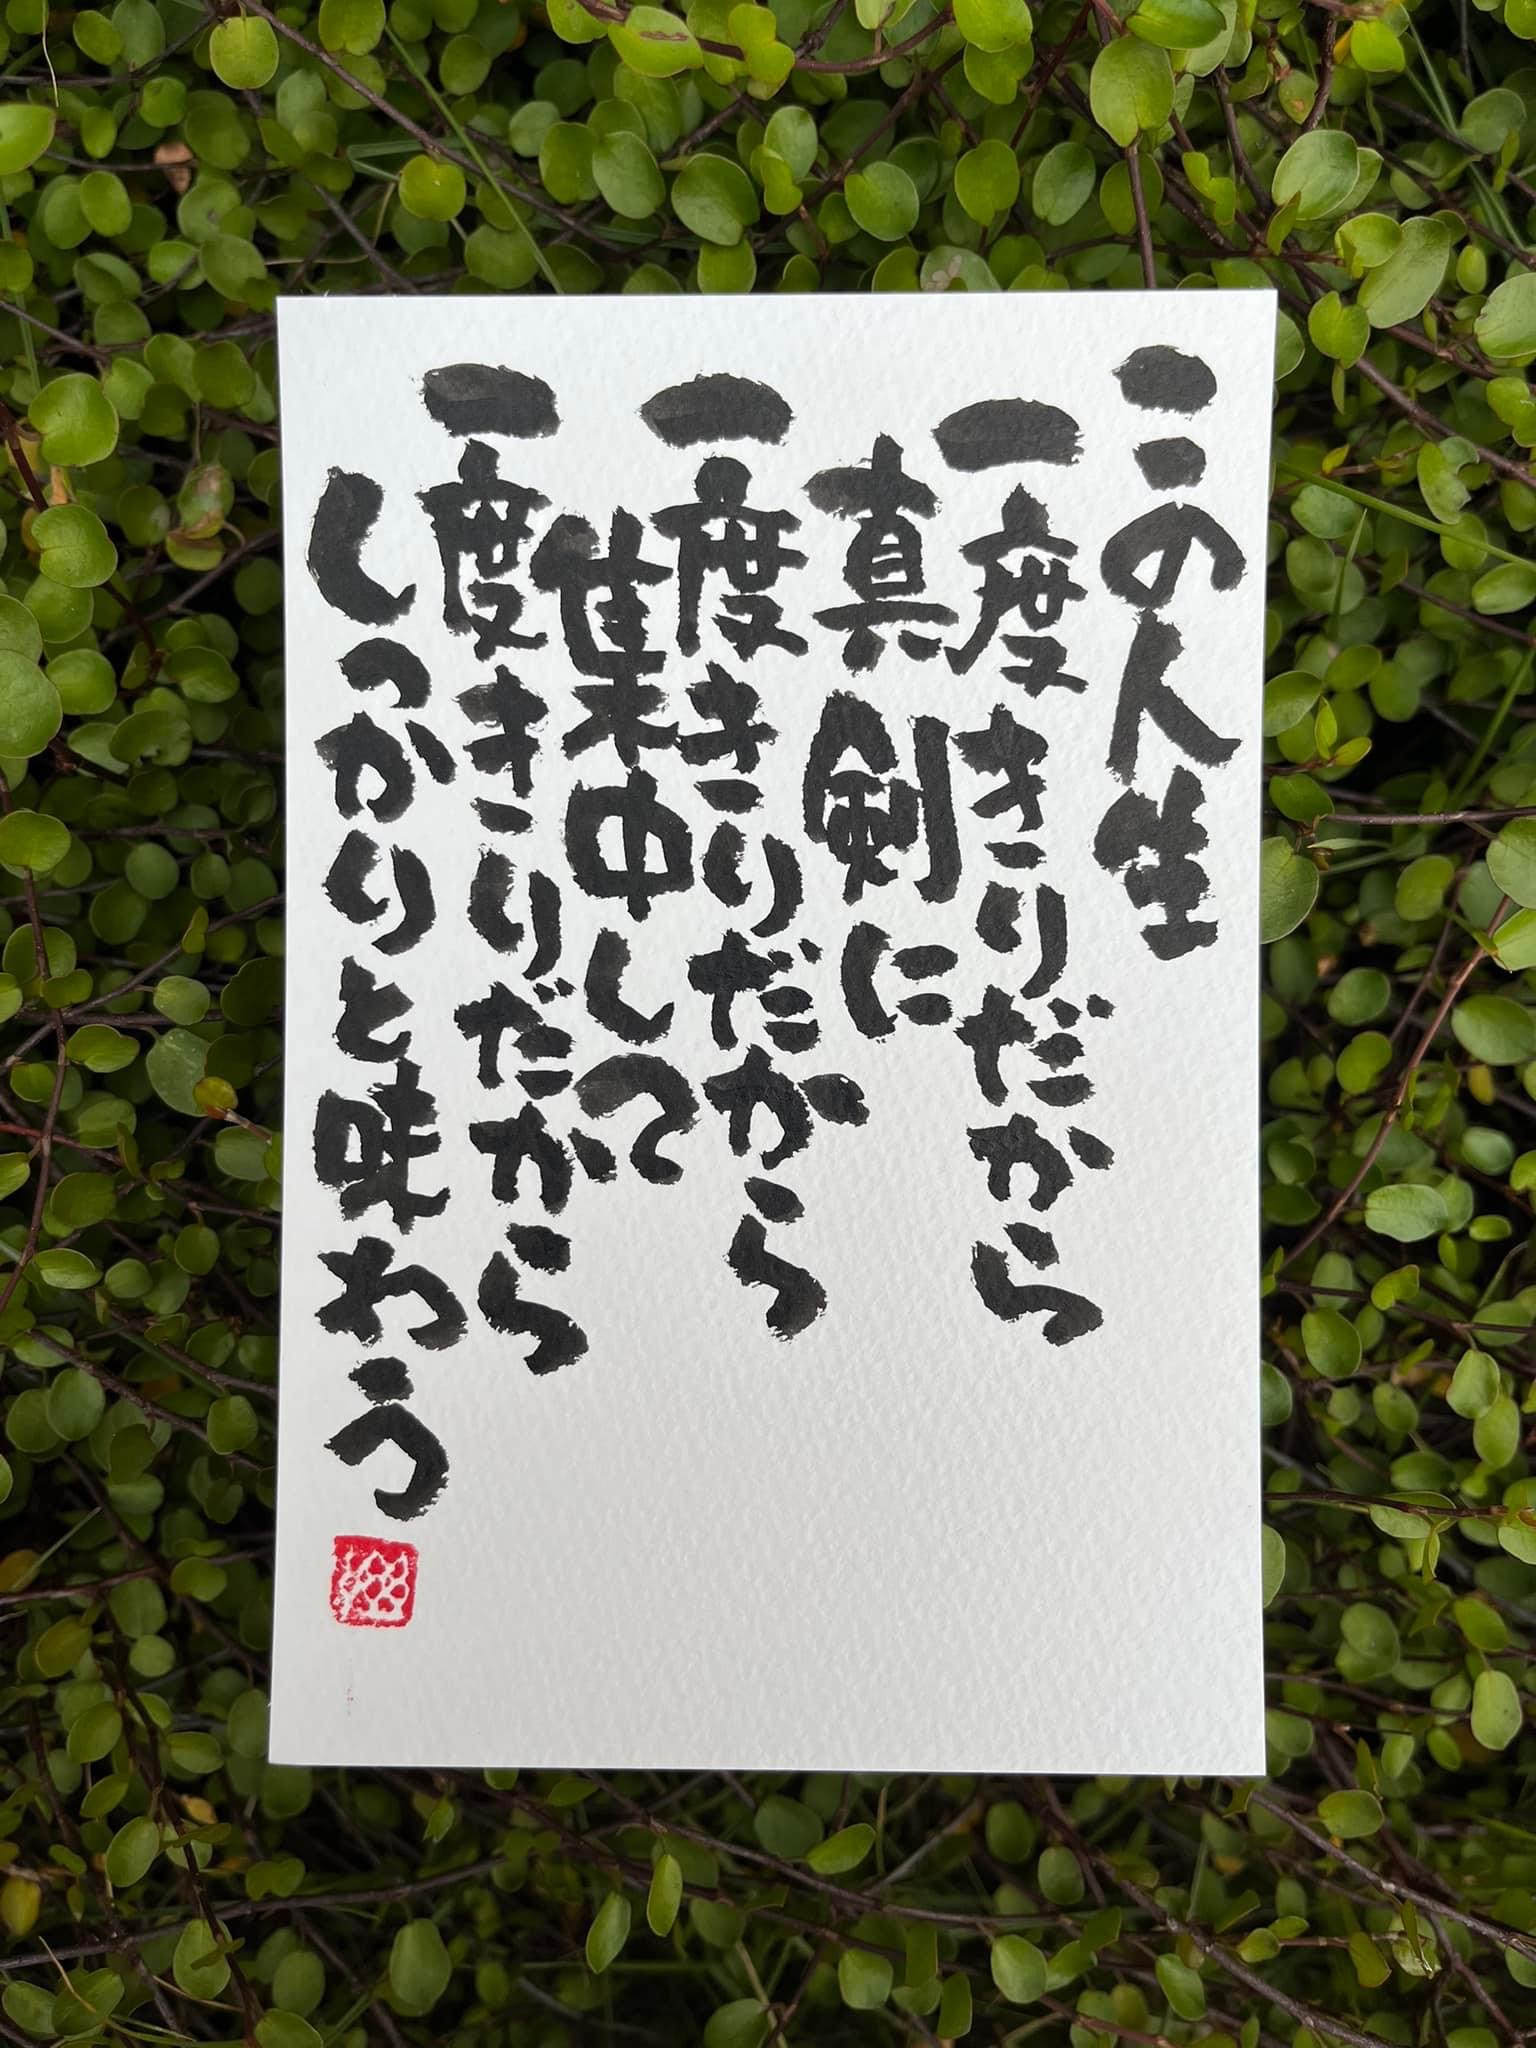 この人生
一度きりだから
真剣に
一度きりだから
集中して
一度きりだから
しっかりと味わう